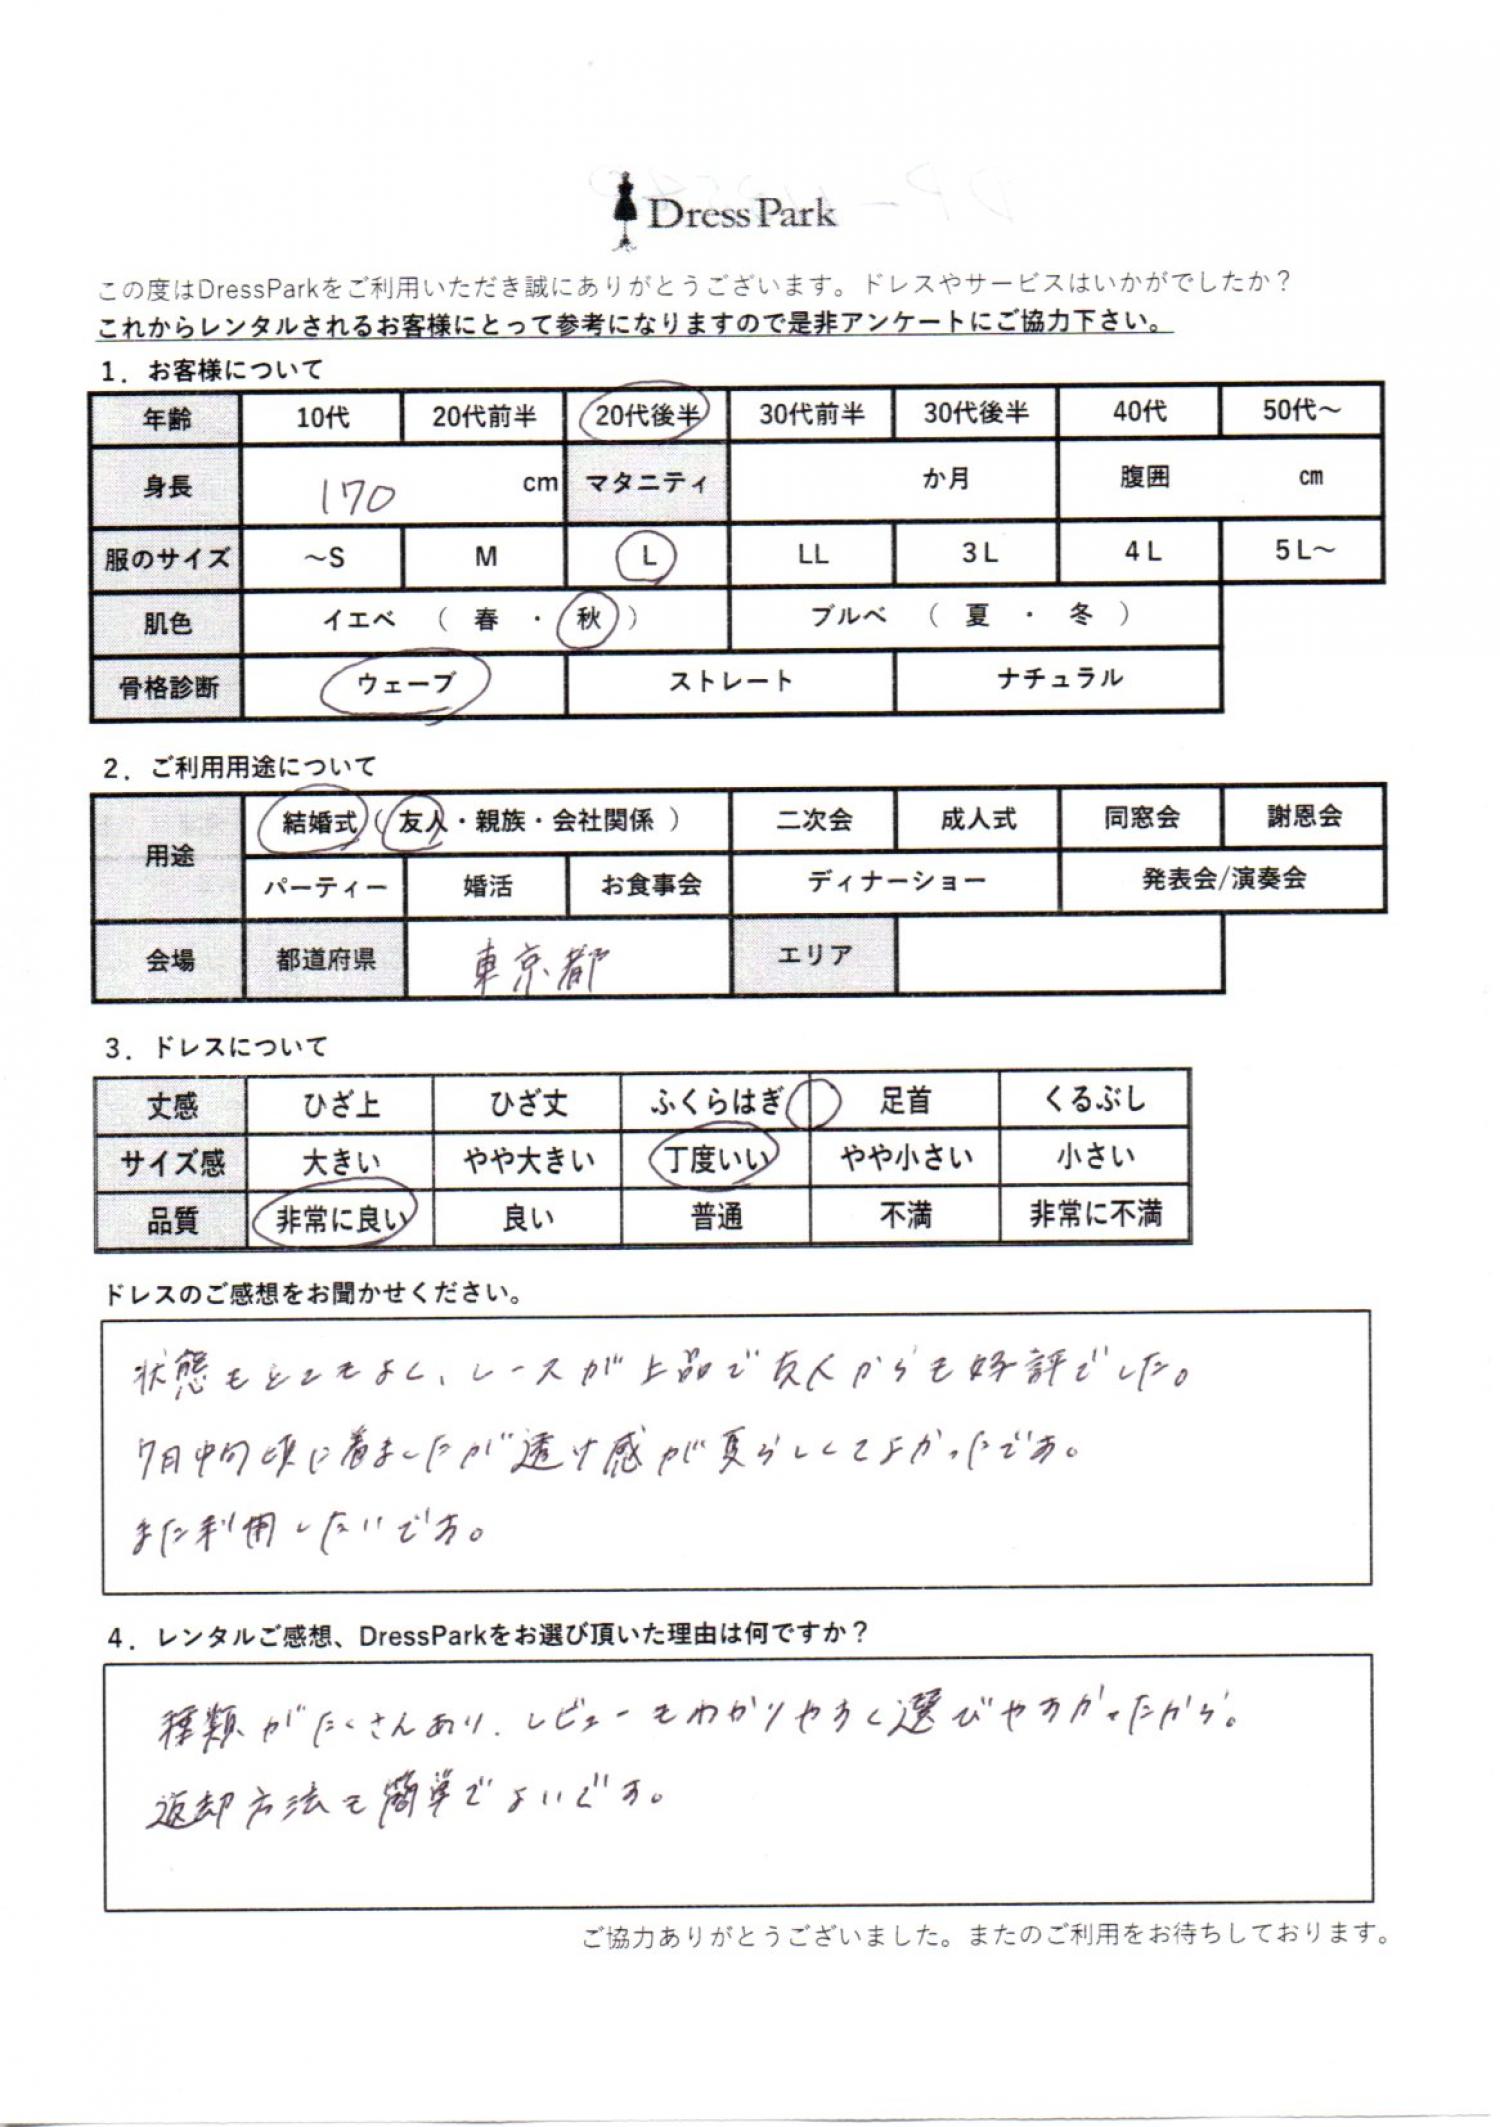 Dress Park
この度はDressParkをご利用いただき誠にありがとうございます。ドレスやサービスはいかがでしたか？
これからレンタルされるお客様にとって参考になりますので是非アンケートにご協力下さい。
1．お客様について
年齢 10代 20代前半 20代後半 30代前半 30代後半 40代 50代～
身長 170 cm マタニティ か月 腹囲 ㎝
服のサイズ ～S M L LL 3L 4L 5L～
肌色 イエベ （ 春 ・ 秋 ） ブルべ （ 夏 ・ 冬 ）
骨格診断 ウェーブ ストレート ナチュラル
2．ご利用用途について
用途 結婚式（友人・親族・会社関係 ） 二次会 成人式 同窓会 謝恩会
パーティー 婚活 お食事会 ディナーショー 発表会/演奏会
会場 都道府県 東京都 エリア
3．ドレスについて
丈感 ひざ上 ひざ丈 ふくらはぎ 足首 くるぶし
サイズ感 大きい やや大きい 丁度いい やや小さい 小さい
品質 非常に良い 良い 普通 不満 非常に不満
ドレスのご感想をお聞かせください。
状態もとてもよく、レースが上品で友人からも好評でした。
7月中旬頃に着ましたが透け感が夏らしくてよかったです。
また利用したいです。
4．レンタルご感想、DressParkをお選び頂いた理由は何ですか？
種類がたくさんあり、レビューもわかりやすく選びやすかったから。
返却方法も簡単でよいです。
ご協力ありがとうございました。またのご利用をお待ちしております。